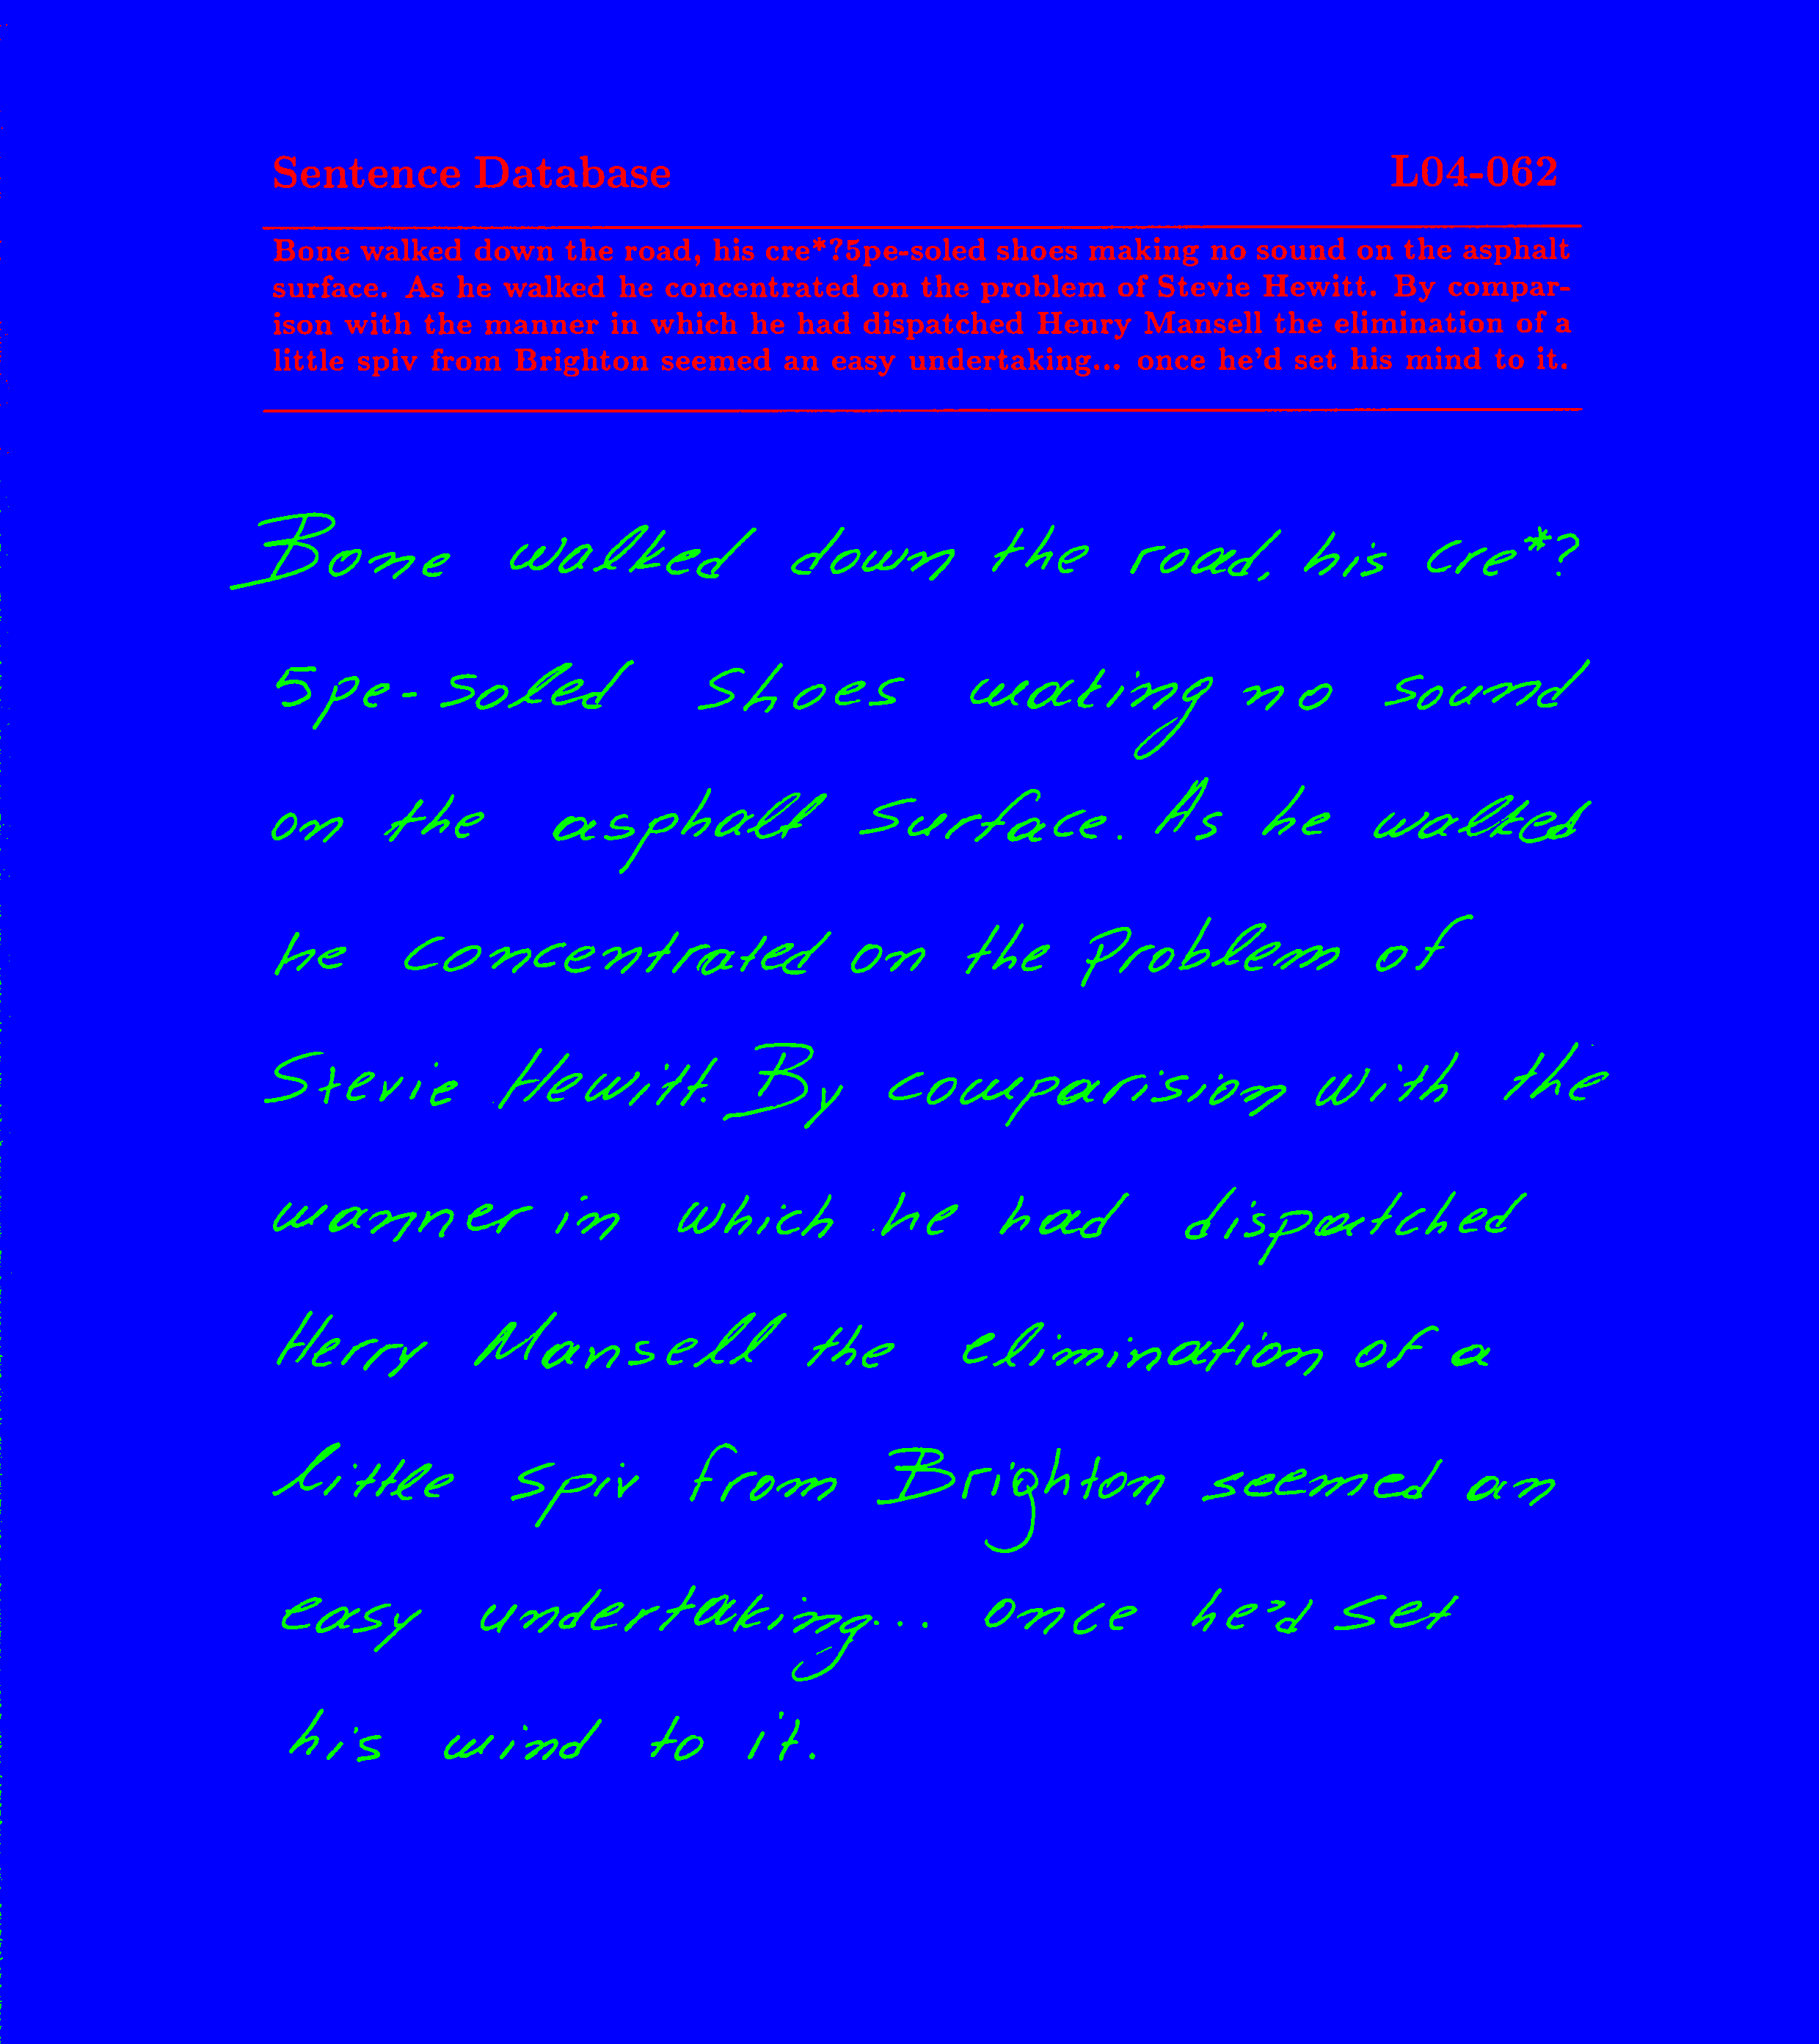 Sentence Database L04-062
Bone walked down the road, his cre*?5pe-soled shoes making no sound on the asphalt
surface. As he walked he concentrated on the problem of Stevie Hewitt. By compar-
ison with the manner in which he had dispatched Henry Mansell the elimination of a
little spiv from Brighton seemed an easy undertaking... once he'd set his mind to it.
Bone walked down the road, his cre*?
5pe-soled shoes making no sound
on the asphalt surface. As he walked
he concentrated on the problem of
Stevie Hewitt. By comparision with the
manner in which he had dispatched
Herry Mansell the elimination of a
little spiv from Brighton seemed an
easy undertaking... once he'd set
his mind to it.